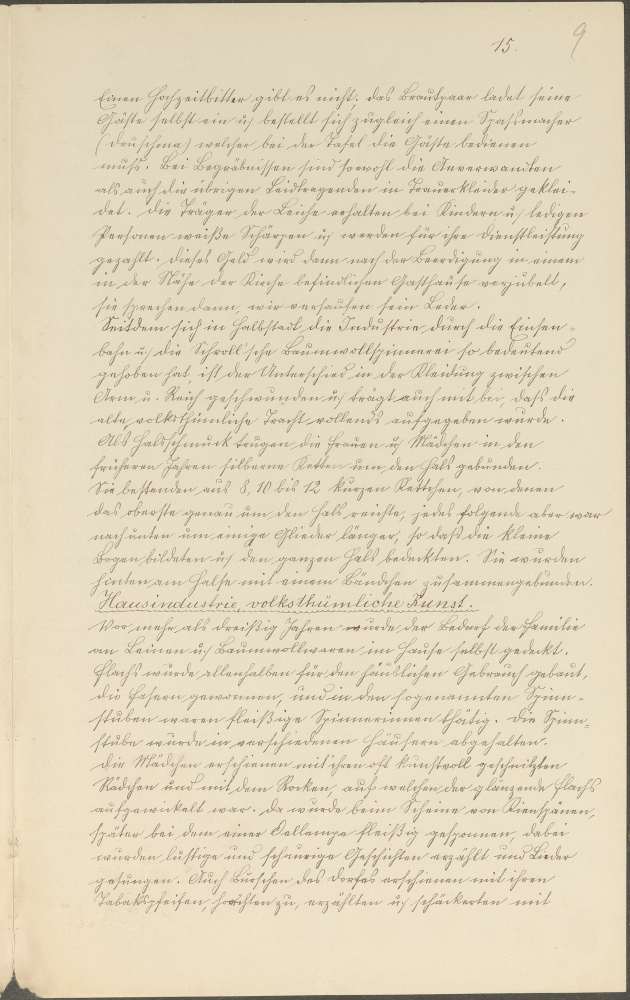 15.
9
Einen Hochzeitbitter gibt es nicht, das Brautpaar ladet seine
Gäste selbst ein u. bestellt sich zugleich einen Spassmacher
(Druschma) welcher bei der Tafel die Gäste bedienen
muss. Bei Begräbnissen sind sowohl die Anverwandten
als auch die übrigen Leidtragenden in Trauerkleider geklei-
det. Die Träger der Leiche erhalten bei Kindern u. ledigen
Personen weiße Schärpen u. werden für ihre Dienstleistung
gezahlt. Dieses Geld wird dann nach der Beerdigung in einem
in der Nähe der Kirche befindlichen Gasthause verjubelt,
sie sprechen dann, wir versaufen sein Leder.
Seitdem sich in Halbstadt die Industrie durch die Eisen-
bahn u. die Schroll'sche Baumwollspinnerei so bedeutend
gehoben hat, ist der Unterschied in der Kleidung zwischen
Arm u. Reich geschwunden u. trägt auch mit bei, dass die
alte volksthümliche Tracht vollends aufgegeben wurde.
Als Halsschmuck trugen die Frauen u. Mädchen in den
früheren Jahren silberne Ketten um den Hals gebunden.
Sie bestanden aus 8, 10 bis 12 kurzen Kettchen, von denen
das oberste genau um den Hals reichte, jedes folgende aber war
nach unten um einige Glieder länger, so dass die kleine
Bogen bildeten u. den ganzen Hals bedeckten. Sie wurden
hinten am Halse mit einem Bändchen zusammengebunden.
Hausindustrie, volksthümliche Kunst.
Vor mehr als dreißig Jahren wurde der Bedarf der Familie
an Leinen u. Baumwollwaren im Hause selbst gedeckt.
Flachs wurde allenthalben für den häuslichen Gebrauch gebaut,
die Fasern gewonnen, und in den sogenannten Spinn-
stuben waren fleißige Spinnerinnen thätig. Die Spinn-
stube wurde in verschiedenen Häusern abgehalten.
Die Mädchen erschienen mit ihren oft kunstvoll geschnitzten
Rädchen und mit dem Rocken, auf welchen der glänzende Flachs
aufgewickelt war. Da wurde beim Scheine von Kienspänen,
später bei dem einer Oellampe fleißig gesponnen, dabei
wurden lustige und schaurige Geschichten erzählt und Lieder
gesungen. Auch Burschen des Dorfes erschienen mit ihren
Tabakspfeifen, horchten zu, erzählten u. schäckerten mit